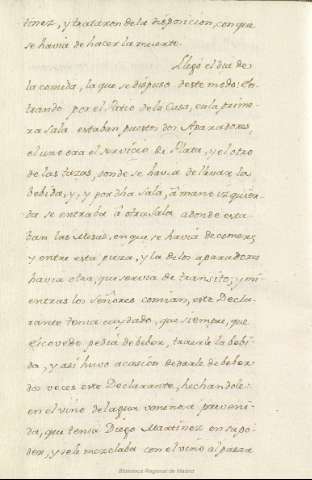 tinez, y trataron dela disposicion, con que
se havia de hacer la muerte.
Llegó el dia de
la comida, la que se dispuso deste modo: En-
trando por el Patio de la Casa, en la prime-
ra sala estaban puestos dos Aparadores,
el uno era el servicio de Plata, y el otro
de las tazas, donde se havia de llevar la
bebida, y, y por dha sala, â mano izquier-
da se entraba â otra sala adonde esta-
ban las Mesas, en que se havia de comer;
y entre esta pieza, y la de los aparadores
havia otra, que servia de transito; y mi-
entras los señores comian, este Decla-
rante tenia cuydado, que siempre, que
Escovedo pedia de beber, traerle la bebi-
da, y asi huvo acasion de darle de beber
dos veces este Declarante, hechandole
en el vino del agua venenosa preveni-
da, que tenia Diego Martinez en su po-
der, y se le mezclaba con el vino al pasar
Biblioteca Regional de Madrid